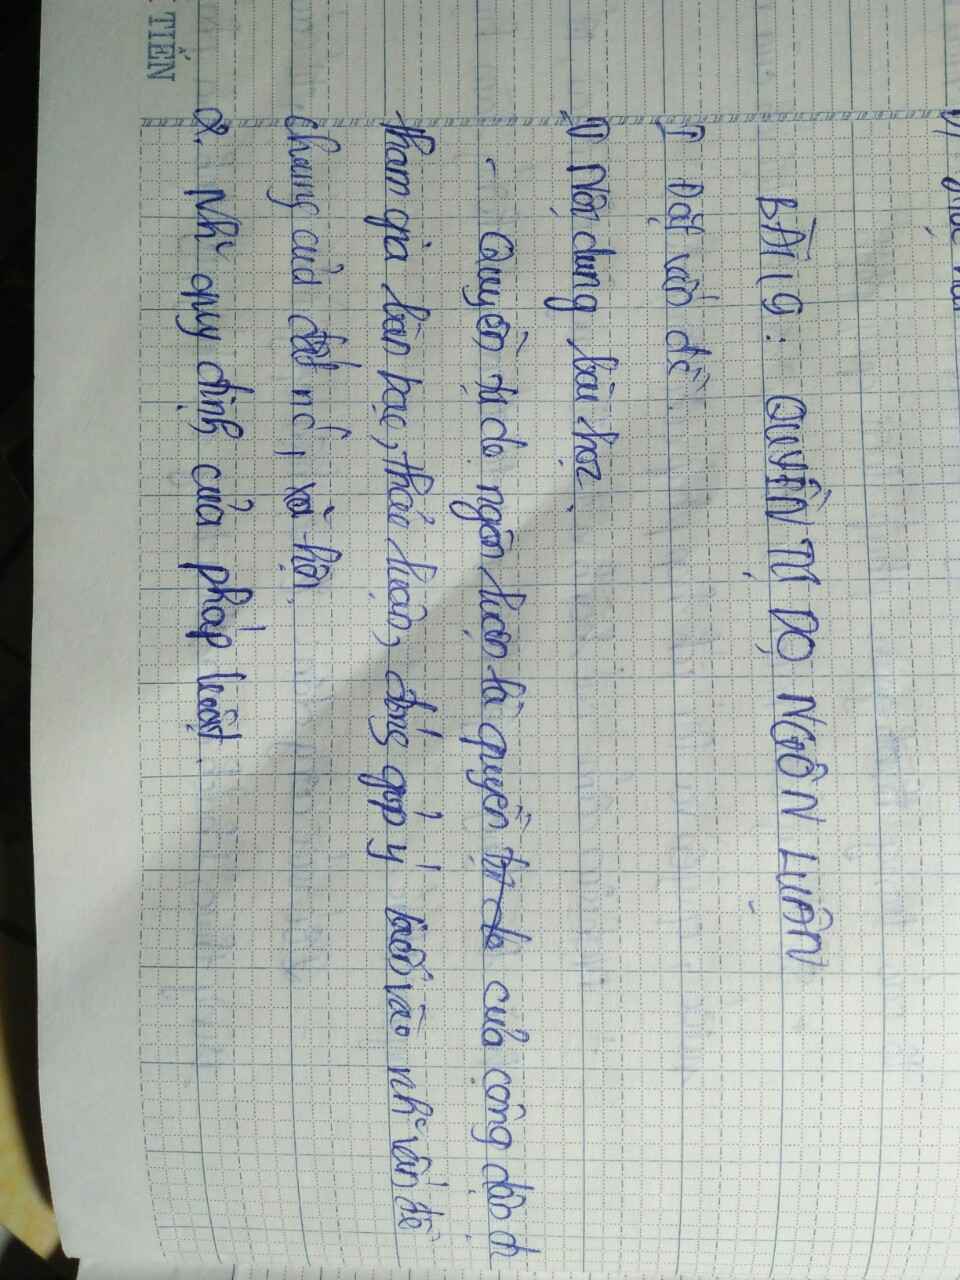 BÀI 19: QUYỀN TỰ DO NGÔN LUẬN
I Đặt vấn đề
II Nội dung bài học
- Quyền tự do ngôn luận là quyền của công dân đ
tham gia bàn bạc, thảo luận, đóng góp ý vào nh~ vấn đề
chung của đất nc, xã hội
2. Nh~ quy định của pháp luật
TIẾN